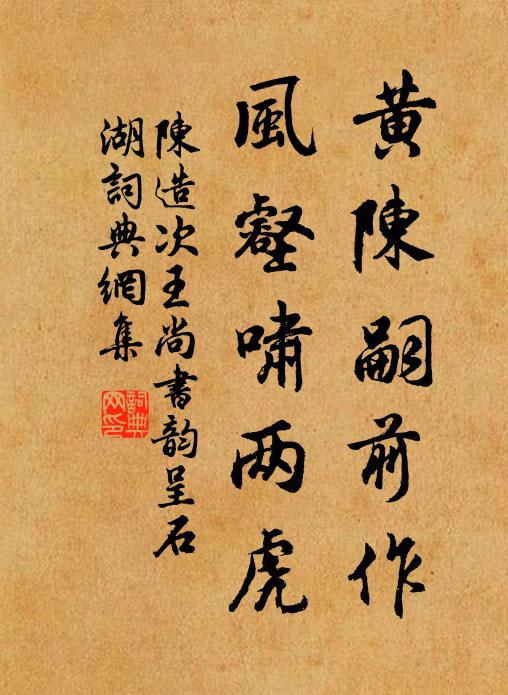 黄陳嗣前作
風壑嘯两虎
陳造次王尚書韵呈石
湖詞典網集
詞典
网印